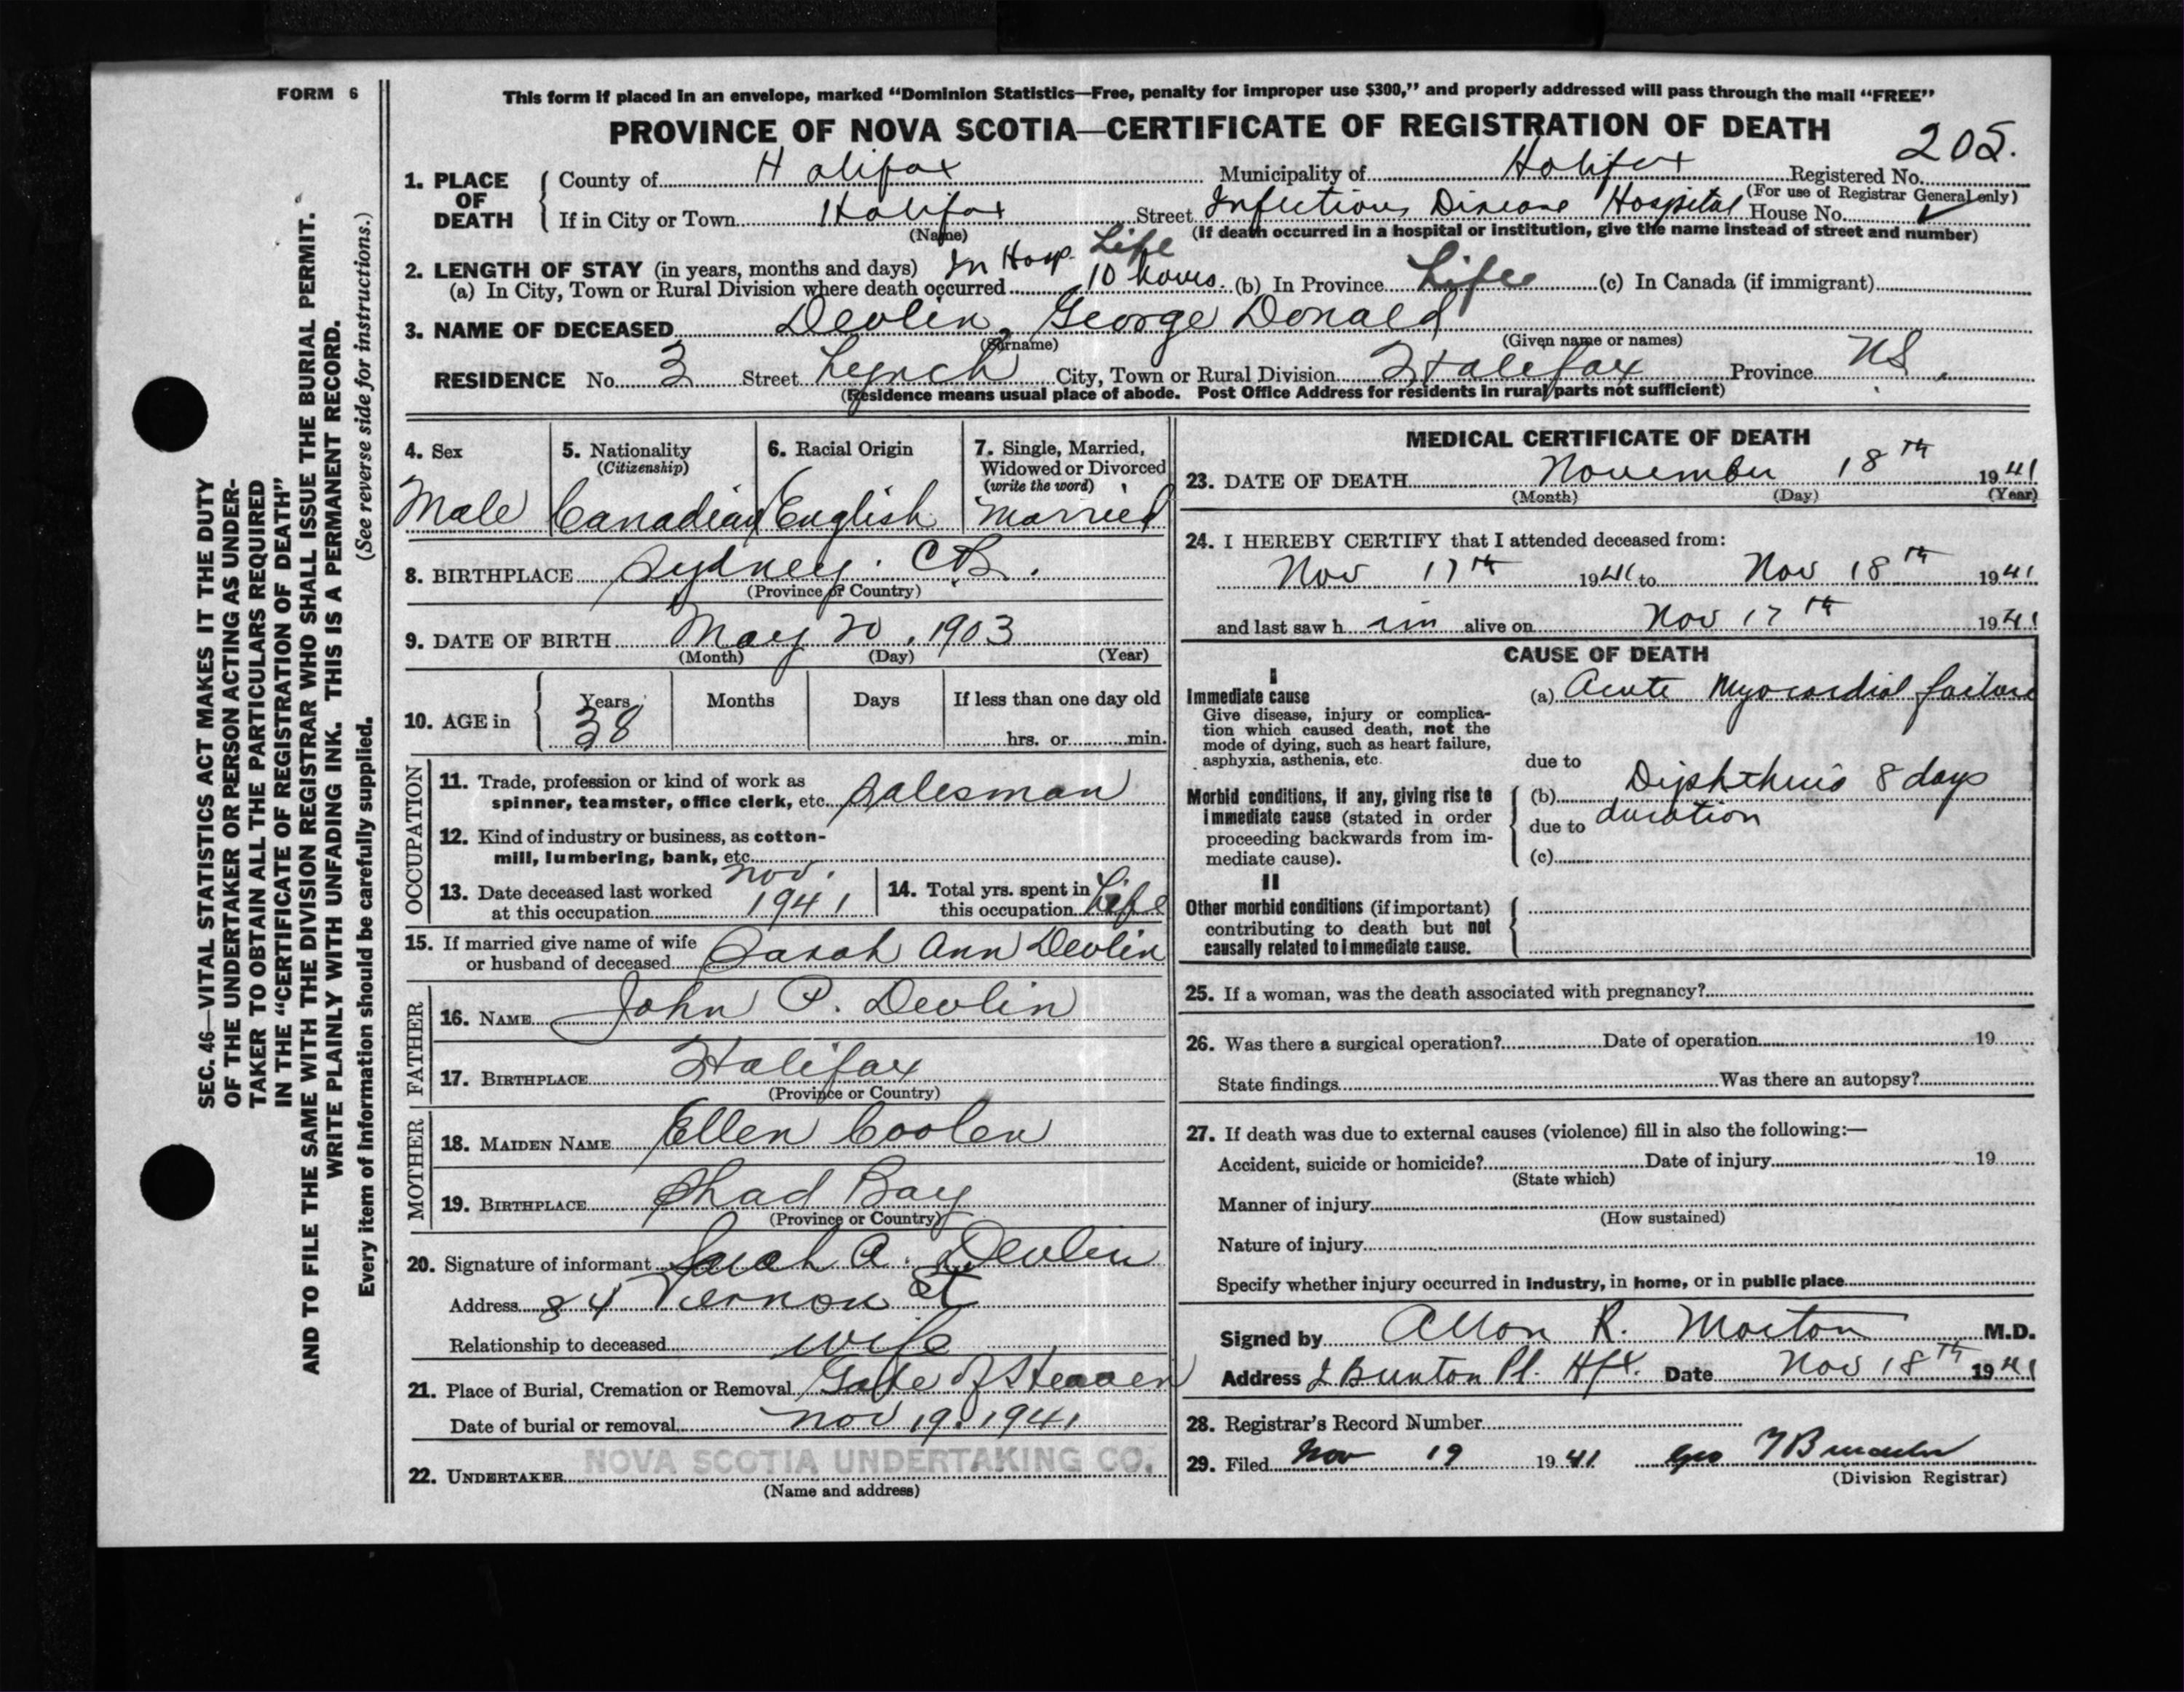 FORM 6
This form if placed in an envelope, marked “Dominion Statistics—Free, penalty for improper use $300,” and properly addressed will pass through the mail “FREE”
PROVINCE OF NOVA SCOTIA—CERTIFICATE OF REGISTRATION OF DEATH
205.
1. PLACE OF DEATH
County of Halifax Municipality of Halifax Registered No.
(For use of Registrar General only)
If in City or Town Halifax Street Infectious Disease Hospital House No.
(Name) (If death occurred in a hospital or institution, give the name instead of street and number)
2. LENGTH OF STAY (in years, months and days) In Hosp. Life
(a) In City, Town or Rural Division where death occurred 10 hours. (b) In Province Life (c) In Canada (if immigrant)
3. NAME OF DECEASED Devlin, George Donald
(Surname) (Given name or names)
RESIDENCE No. 3 Street Lynch City, Town or Rural Division Halifax Province NS.
(Residence means usual place of abode. Post Office Address for residents in rural parts not sufficient)
4. Sex
Male
5. Nationality
(Citizenship)
Canadian
6. Racial Origin
English
7. Single, Married,
Widowed or Divorced
(write the word)
Married
8. BIRTHPLACE Sydney. C.B.
(Province or Country)
9. DATE OF BIRTH May 20, 1903
(Month) (Day) (Year)
10. AGE in Years Months Days If less than one day old
38 hrs. or min.
OCCUPATION
11. Trade, profession or kind of work as
spinner, teamster, office clerk, etc. Salesman
12. Kind of industry or business, as cotton-
mill, lumbering, bank, etc.
13. Date deceased last worked Nov.
at this occupation 1941
14. Total yrs. spent in
this occupation Life
15. If married give name of wife
or husband of deceased Sarah Ann Devlin
FATHER
16. NAME John P. Devlin
17. BIRTHPLACE Halifax
(Province or Country)
MOTHER
18. MAIDEN NAME Ellen Coolen
19. BIRTHPLACE Shad Bay
(Province or Country)
20. Signature of informant Sarah A. Devlin
Address 84 Vernon St
Relationship to deceased wife
21. Place of Burial, Cremation or Removal Gate of Heaven
Date of burial or removal Nov 19, 1941
22. UNDERTAKER NOVA SCOTIA UNDERTAKING CO.
(Name and address)
MEDICAL CERTIFICATE OF DEATH
23. DATE OF DEATH November 18th 1941
(Month) (Day) (Year)
24. I HEREBY CERTIFY that I attended deceased from:
Nov 17th 1941 to Nov 18th 1941
and last saw h im alive on Nov 17th 1941
CAUSE OF DEATH
I
Immediate cause (a) Acute Myocardial failure
Give disease, injury or complica-
tion which caused death, not the
mode of dying, such as heart failure,
asphyxia, asthenia, etc.
due to
Morbid conditions, if any, giving rise to (b) Diphtheria 8 days
immediate cause (stated in order due to duration
proceeding backwards from im-
mediate cause). (c)
II
Other morbid conditions (if important)
contributing to death but not
causally related to immediate cause.
25. If a woman, was the death associated with pregnancy?
26. Was there a surgical operation? Date of operation 19
State findings Was there an autopsy?
27. If death was due to external causes (violence) fill in also the following:—
Accident, suicide or homicide? Date of injury 19
(State which)
Manner of injury
(How sustained)
Nature of injury
Specify whether injury occurred in industry, in home, or in public place
Signed by Allan R. Morton M.D.
Address Pl. Hfx. Date Nov 18th 1941
28. Registrar's Record Number
29. Filed Nov 19 1941 Geo
(Division Registrar)
SEC. 46—VITAL STATISTICS ACT MAKES IT THE DUTY
OF THE UNDERTAKER OR PERSON ACTING AS UNDER-
TAKER TO OBTAIN ALL THE PARTICULARS REQUIRED
IN THE “CERTIFICATE OF REGISTRATION OF DEATH”
AND TO FILE THE SAME WITH THE DIVISION REGISTRAR WHO SHALL ISSUE THE BURIAL PERMIT.
WRITE PLAINLY WITH UNFADING INK. THIS IS A PERMANENT RECORD.
Every item of information should be carefully supplied. (See reverse side for instructions.)